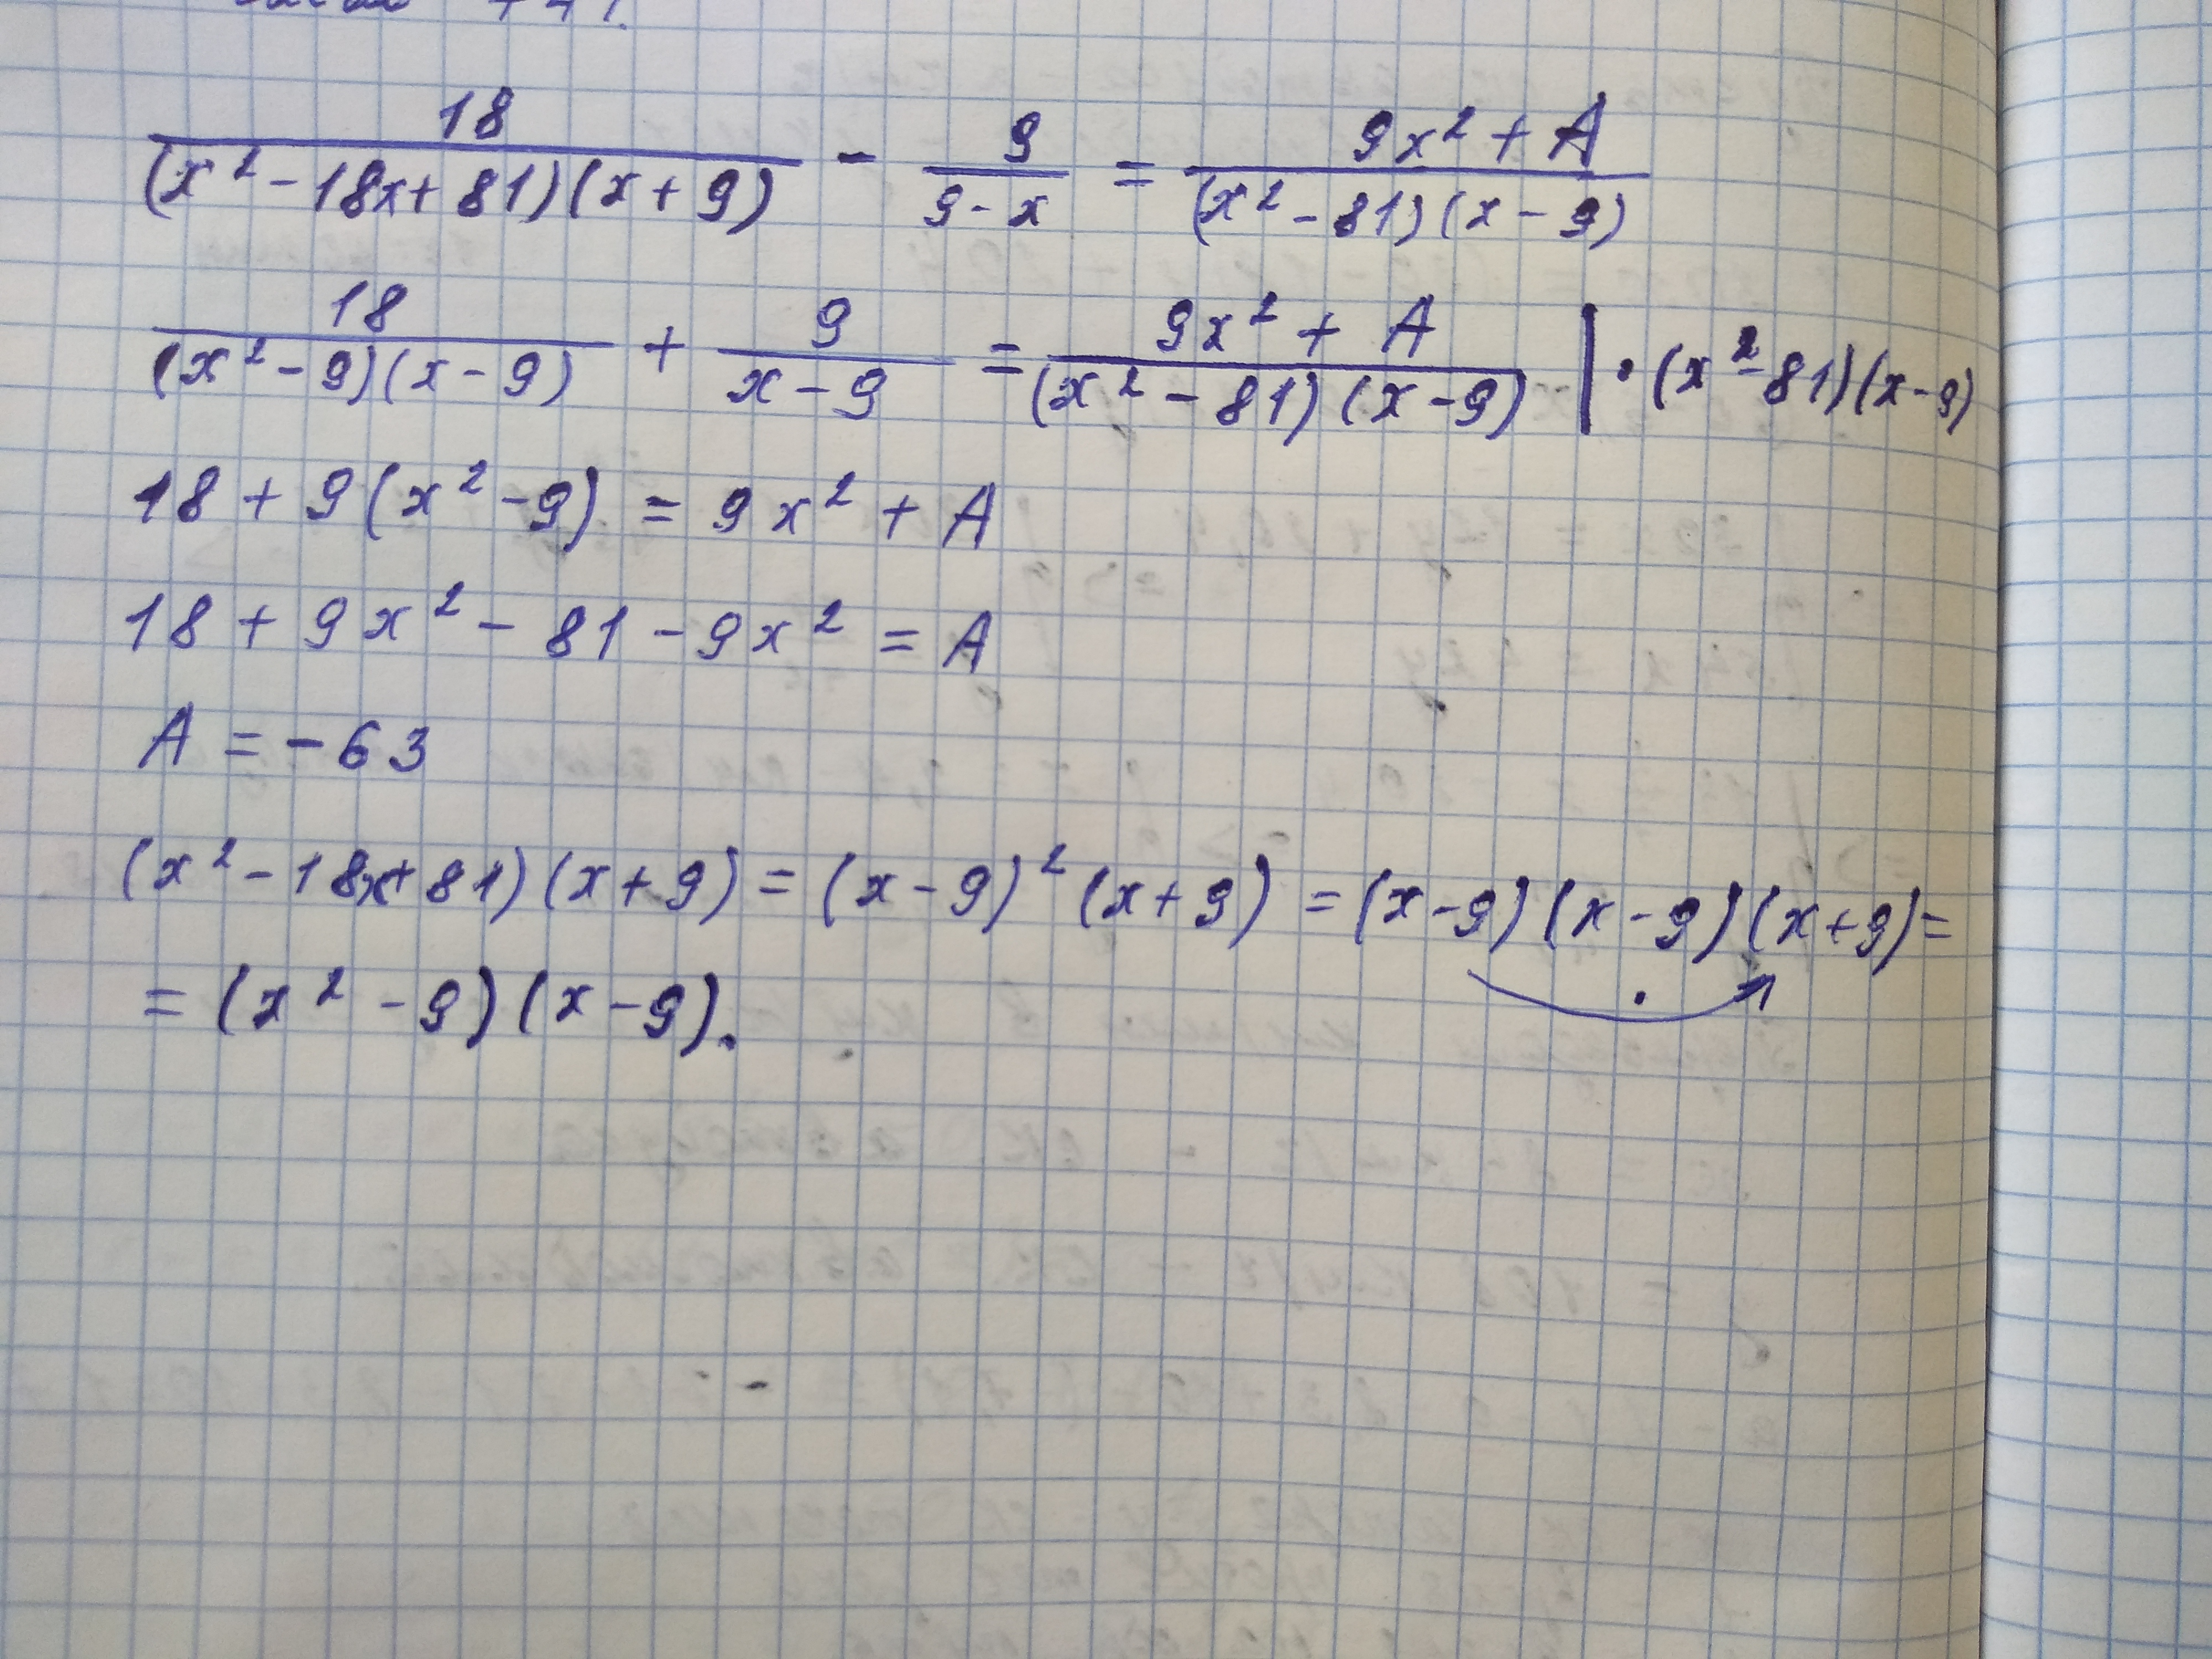 18/((x² - 18x + 81)(x + 9)) - 9/(9 - x) = (9x² + A)/((x² - 81)(x - 9))
18/((x² - 9)(x - 9)) + 9/(x - 9) = (9x² + A)/((x² - 81)(x - 9)) | · (x² - 81)(x - 9)
18 + 9(x² - 9) = 9x² + A
18 + 9x² - 81 - 9x² = A
A = -63
(x² - 18x + 81)(x + 9) = (x - 9)² (x + 9) = (x - 9)(x - 9)(x + 9) =
= (x² - 9)(x - 9).